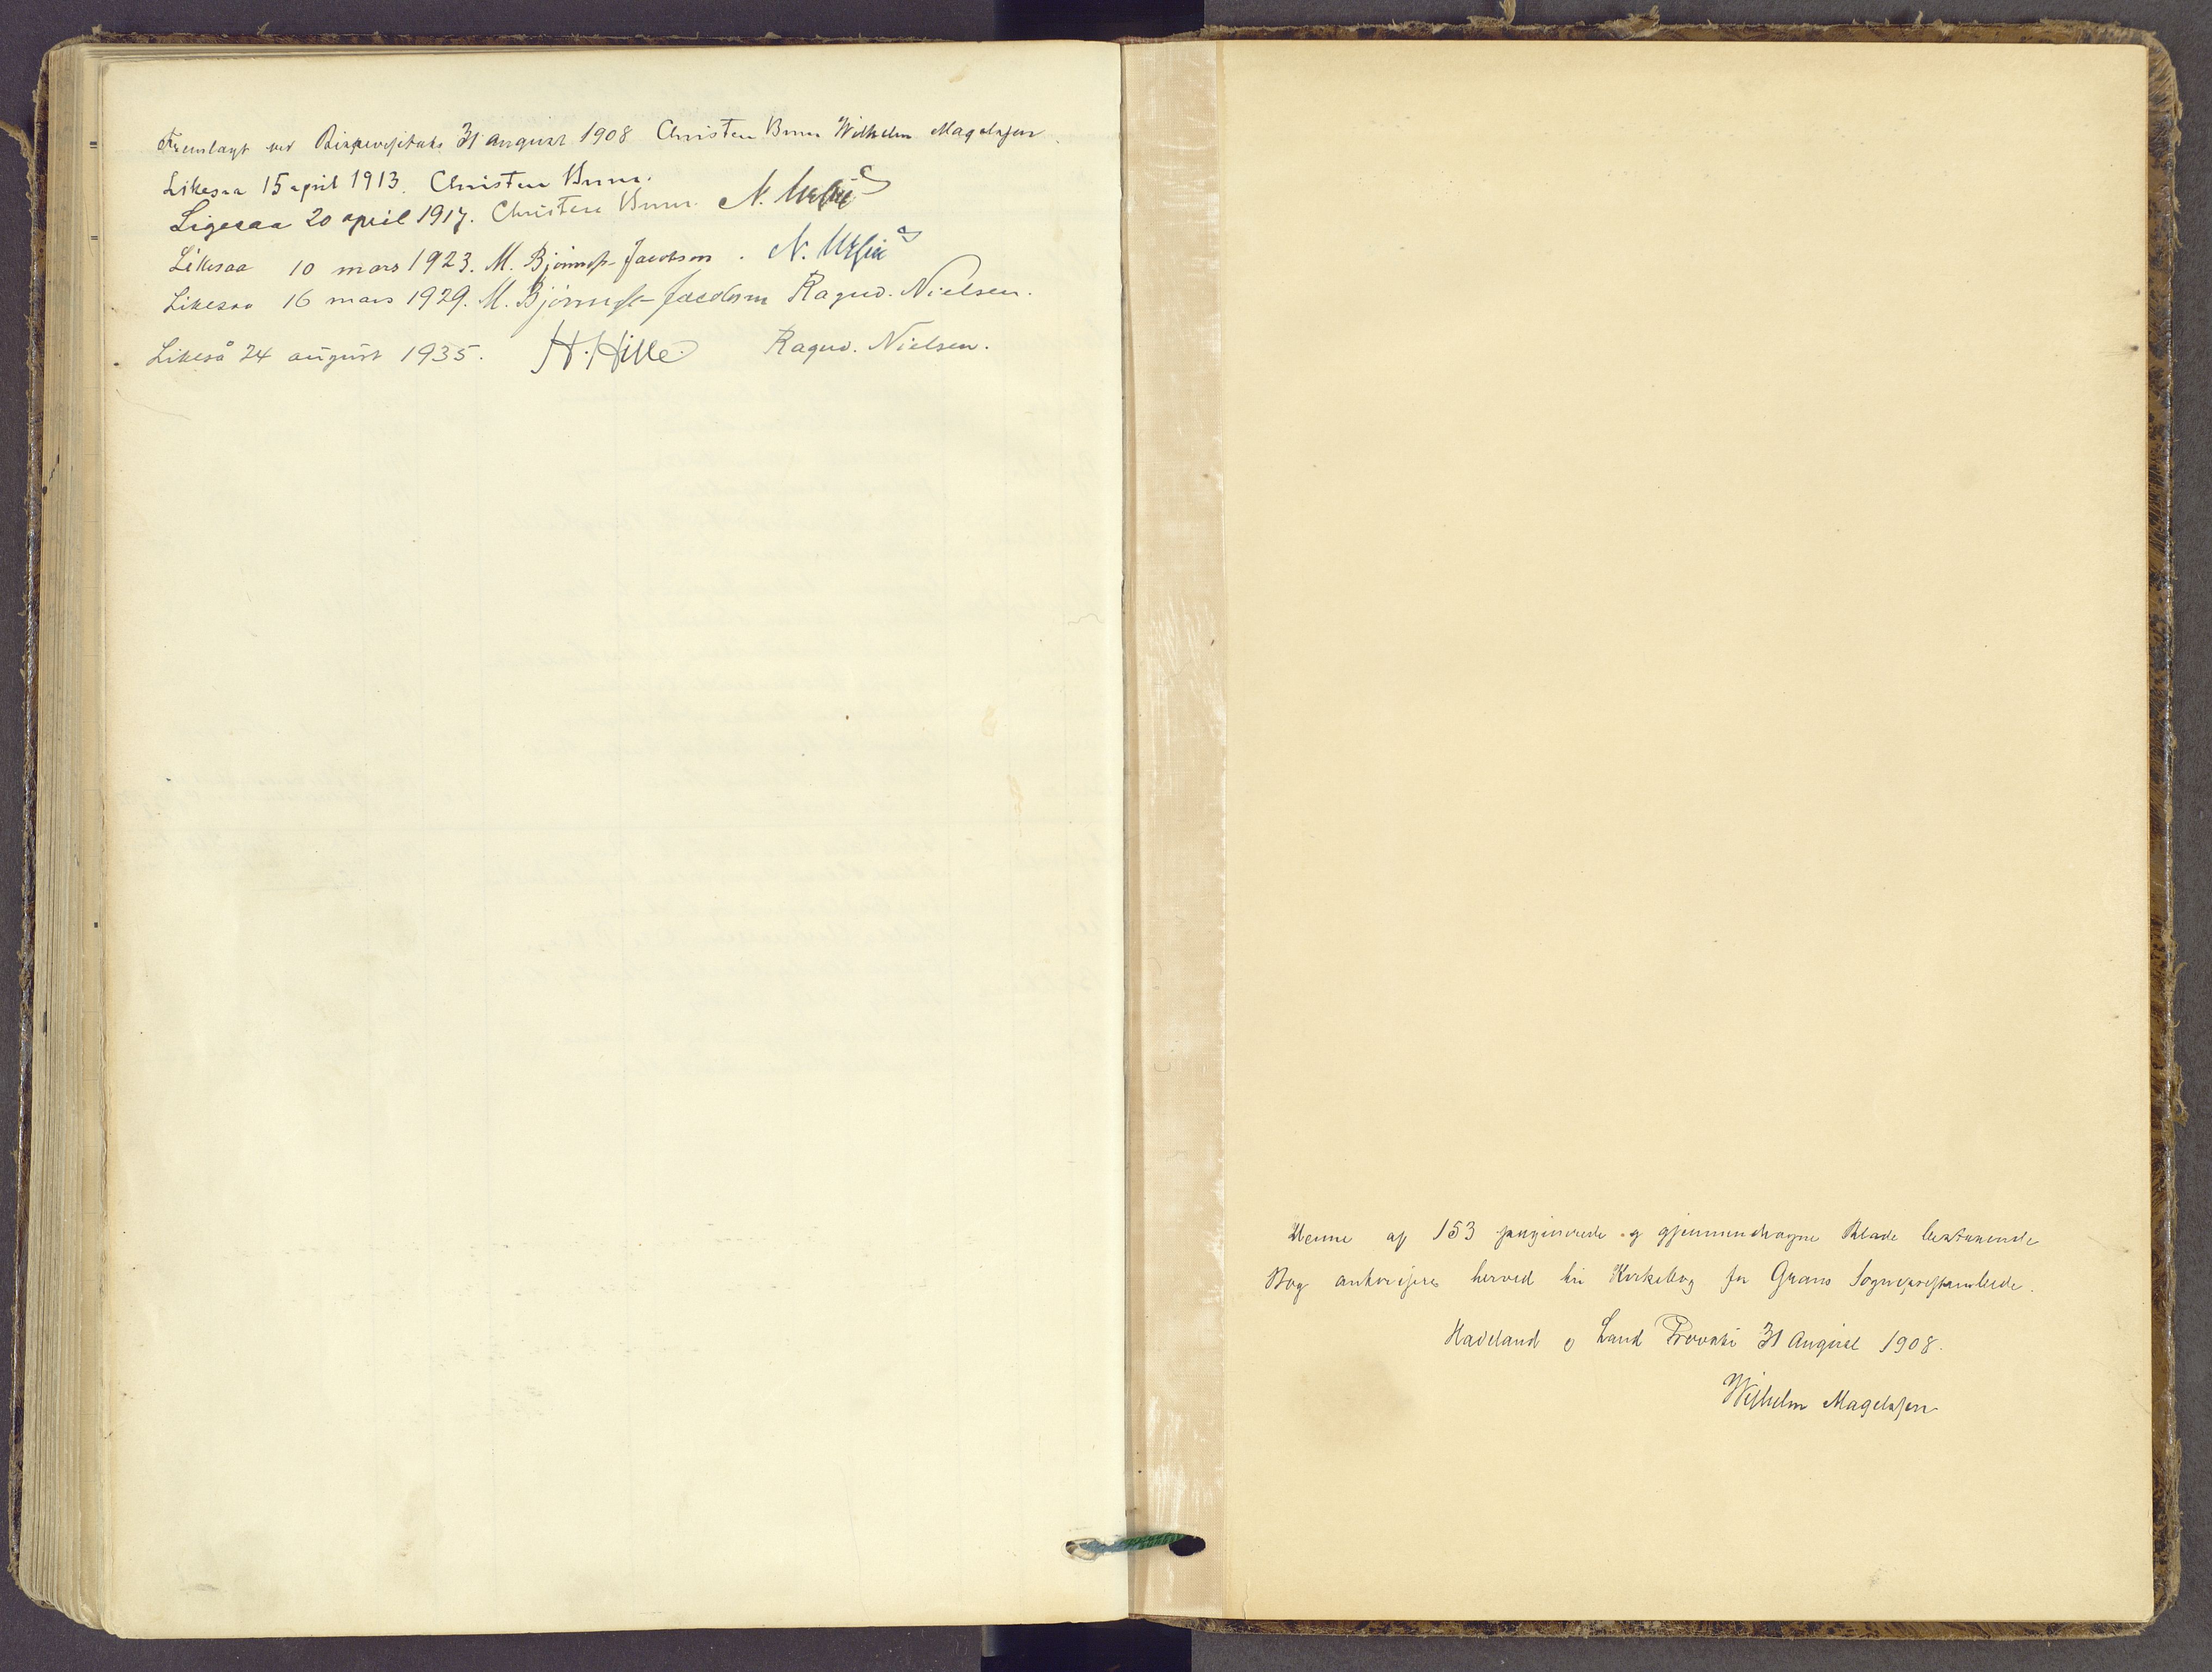 Fremlagt ved Bispevisitats 31 august 1908 Christen Brun Wilhelm Magelssen.
Likesaa 15 april 1913. Christen Brun.
Ligesaa 20 april 1917. Christen Brun. N.
Likesaa 10 mars 1923. M. Bjønness-Jacobsen. N.
Likesaa 16 mars 1929. M. Bjønness-Jacobsen Ragnv. Nielsen.
Likeså 24 august 1935. H. Hille. Ragnv. Nielsen.
Denne af 153 paginerede og gjennemdragne Blade bestaaende
Bog autoriseres herved til Kirkebog for Grans Sogneprestembede.
Hadeland o Land Provsti 31 August 1908.
Wilhelm Magelssen